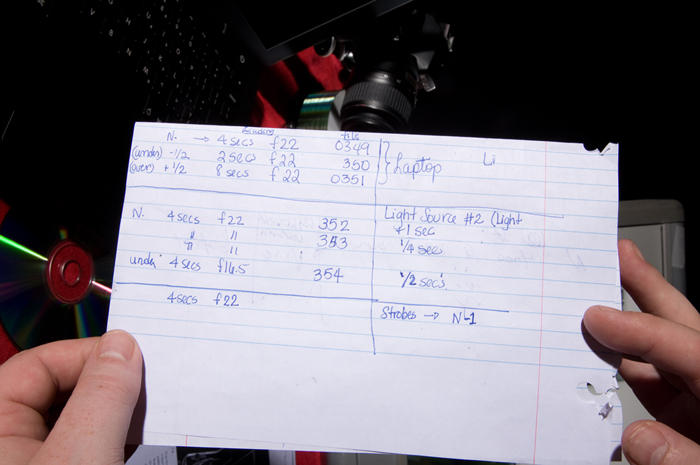 Reading file
N. → 4 secs f22 0349 Laptop Li
(under) -1/2 2 secs f22 350
(over) +1/2 8 secs f22 0351
N. 4 secs f22 352 Light Source #2 (Light
" " 353 +1 sec
" " 1/4 sec
under 4 secs f16.5 354 1/2 sec's
4 secs f22 Strobes → N-1